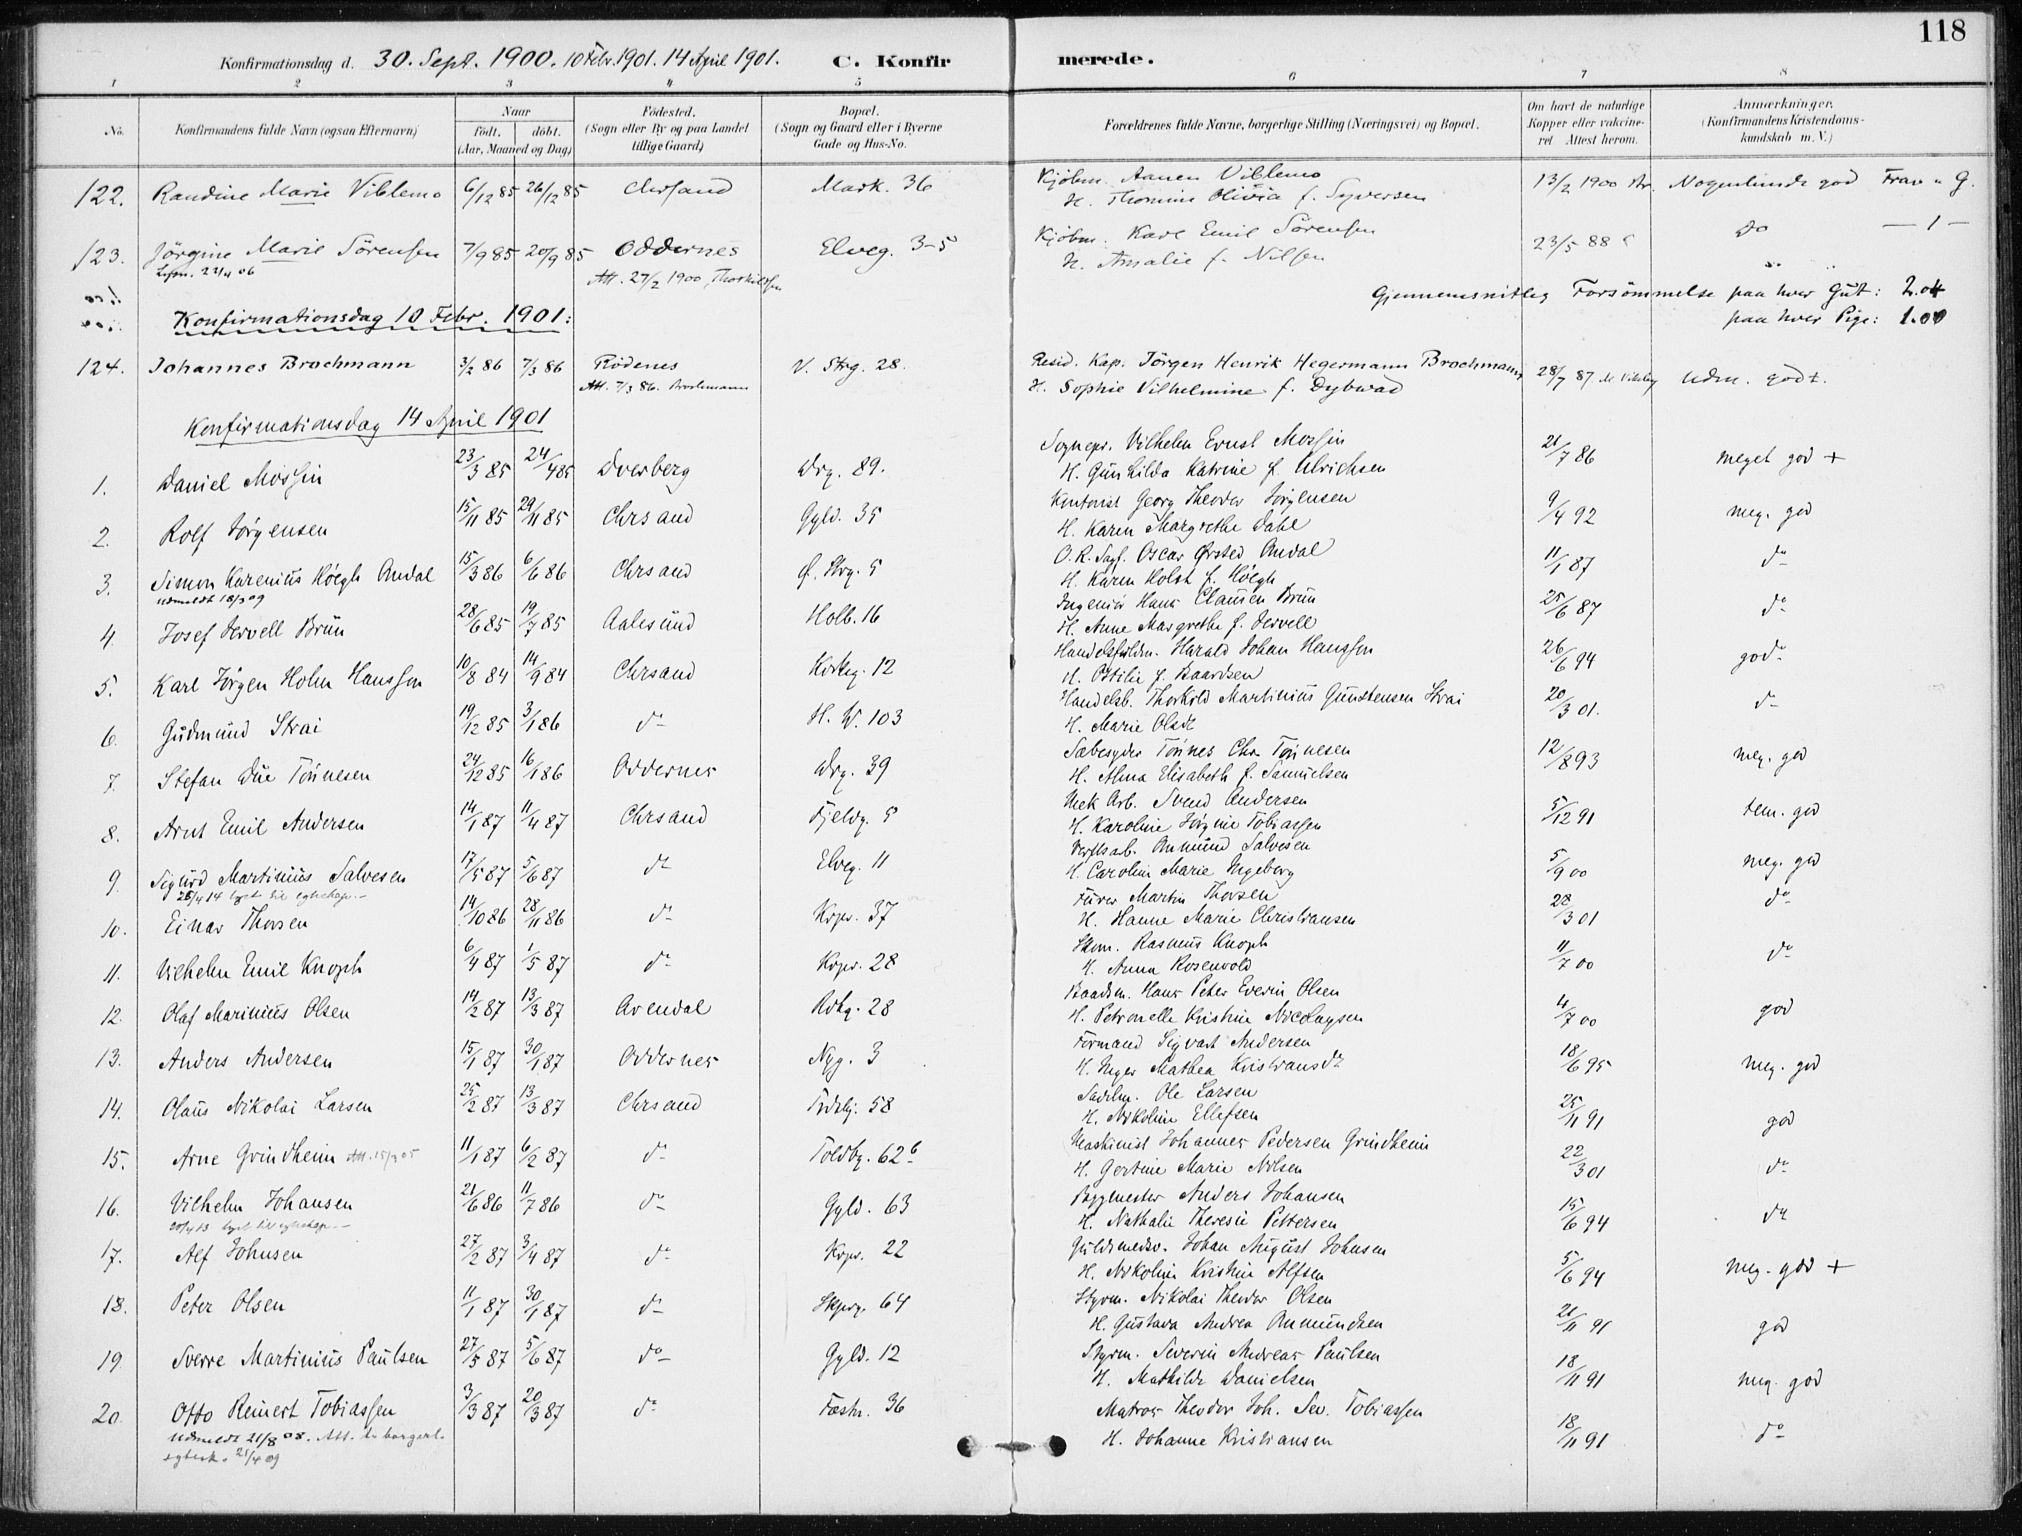 118
Konfirmationsdag d. 30. Sept. 1900. 10 Febr. 1901. 14 April 1901. C. Konfir merede.
1 2 3 4 5 6 7 8
No. Konfirmandens fulde Navn (ogsaa Efternavn) Naar födt. döbt. (Aar, Maaned og Dag) Födested. (Sogn eller By og paa Landet tillige Gaard) Bopæl. (Sogn og Gaard eller i Byerne Gade og Hus-No. Forældrenes fulde Navne, borgerlige Stilling (Næringsvei) og Bopæl. Om havt de naturlige Kopper eller vakcineret Attest herom. Anmærkninger. (Konfirmandens Kristendomskundskab m. V.)
122. Randine Marie Viblemo 6/12 85 26/12 85 Chrsand Mark. 36 Kjöbm. Aanen Viblemo 13/2 1900 Nogenlunde god Frav. 4 G.
H. Thomine Olivia f. Syversen
123. Jörgine Marie Sörensen 7/9 85 20/9 85 Oddernes Elveg. 35 Kjöbm. Karl Emil Sörensen 23/5 88 do — 1 —
22/4 06 Att. 27/2 1900, Thorkildsen H. Amalie f. Nilsen
Gjennemsnitlig Forsömmelse paa hver Gut: 2.04
Konfirmationsdag 10 Febr. 1901: paa hver Pige: 1.00
124. Johannes Brochmann 3/2 86 7/3 86 Rödenes V. Strg. 28. Resid. Kap. Jörgen Henrik Hegermann Brochmann 28/7 87 Udm. godt.
Att. 7/3 86. Brochmann H. Sophie Vilhelmine f. Dybwad
Konfirmationsdag 14 April 1901
1. Daniel Mossin 23/3 85 24/4 85 Dverberg Drg. 89. Sognepr. Vilhelm Ernst Mossin 21/7 86 meget god +
H. Gunhilda Katrine f. Ulrichsen
2. Rolf Jörgensen 15/11 85 29/11 85 Chrsand Gyld. 35 Kontorist Georg Theodor Jörgensen 9/4 92 meg. god
H. Karen Margrethe Dahl
3. Simon Karenius Höegh Omdal 15/3 86 6/6 86 Chrsand Ø. Strg. 5 O.R. Sagf. Oscar Ørsted Omdal 11/1 87 do
Udmeldt 18/3 09 H. Karen Holst f. Höegh
4. Josef Jervell Brün 28/6 85 19/7 85 Aalesund Holb. 16 Ingeniör Hans Clausen Brün 25/6 87 do
H. Anne Margrethe f. Jervell
5. Karl Jörgen Holm Hansson 10/8 84 14/9 84 Chrsand Kirkeg. 12 Handelsfuldm. Harald Johan Hansson 26/6 94 god
H. Ottilie f. Baardsen
6. Gudmund Strai 19/12 85 3/1 86 do H. W. 103 Handelsb. Thorkild Martinius Gundtensen Strai 20/3 01. do
H. Marie Olsdt
7. Stefan Due Tönnesen 24/12 85 16/1 86 Oddernes Drg. 39 Sæbesyder Tönnes Chr. Tönnesen 12/8 93 meg. god
H. Alma Elisabeth f. Samuelsen
8. Arnt Emil Andersen 14/1 87 11/4 87 Chrsand Fjeldg. 5 Mek Arb. Svend Andersen 5/12 91 tem. god
H. Karoline Jörgine Tobiassen
9. Sigurd Martinius Salvesen 17/5 87 5/6 87 do Elveg. 11 Verftsarb. Anmund Salvesen 5/9 00 meg. god
25/4 14 lyst til egteskap. — H. Caroline Marie Ingeborg
10. Einar Thorsen 14/10 86 28/11 86 do Krpr. 37 Furer Martin Thorsen 28/3 01 do
H. Hanne Marie Christiansen
11. Vilhelm Emil Knoph 6/4 87 1/5 87 do Krpr. 28 Skom. Rasmus Knoph 11/7 00 do
H. Anna Rosenvold
12. Olaf Marinius Olsen 14/2 87 13/3 87 Arendal Rdhg. 28 Baadsm. Hans Peter Everin Olsen 4/7 00 god
H. Petronelle Kristine Nicolaysen
13. Anders Andersen 15/1 87 30/1 87 Oddernes Nyg. 3 Formand Sigvart Andersen 18/6 95 meg. god
H. Inger Mathea Kristiansdt
14. Olaus Nikolai Larsen 25/2 87 13/3 87 Chrsand 58 Ole Larsen 25/11 91 god
H. Nikoline Ellefsen
15. Arne Grindheim Att. 15/3 05 11/1 87 6/2 87 do Toldbg. 62 b Maskinist Johannes Pedersen Grindheim 22/3 01 do
H. Gertine Marie Nilsen
16. Vilhelm Johansen 21/6 86 11/7 86 do Gyld. 63 Byggmester Anders Johansen 15/6 94 do
20/4 13 lyst til egteskap. — H. Nathalie Theresie Pettersen
17. Alf Johnsen 27/2 87 3/4 87 do Krpr. 22 Guldsmedsv. Johan August Johnsen 5/6 94 meg. god +
H. Nikoline Kristine Alfsen
18. Peter Olsen 11/1 87 30/1 87 do Skprg. 64 Styrm. Nikolai Theodor Olsen 21/11 91 god
H. Gustava Andrea Anmundsen
19. Sverre Martinius Paulsen 27/5 87 5/6 87 do Gyld. 12 Styrm. Severin Andreas Paulsen 18/11 91 meg. god
H. Mathilde Danielsen
20. Otto Reinert Tobiassen 3/3 87 20/3 87 do Festn. 36 Matros Theodor Joh. Sev. Tobiassen 18/11 91 do
Udmeldt 21/8 08. Att. t. borgerl. H. Johanne Kristiansen
egtesk. 21/4 09